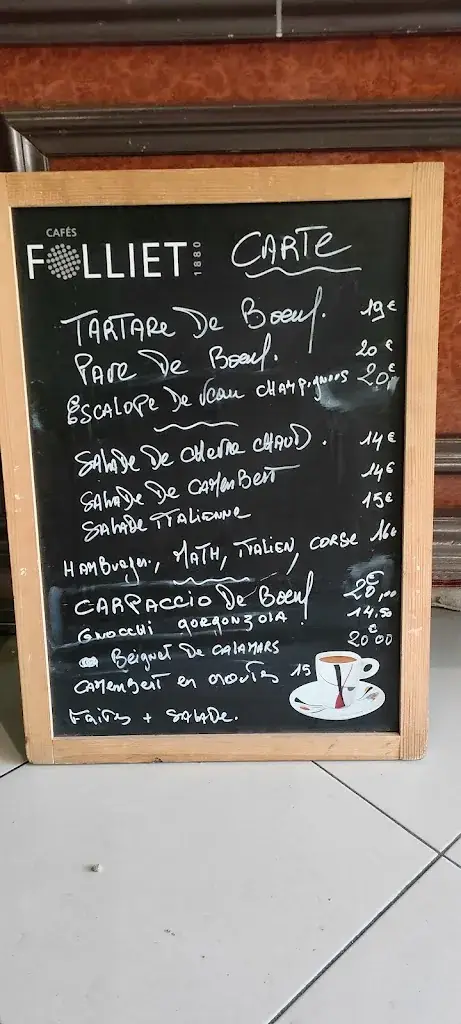 CAFÉS
FOLLIET 1880
CARTE
TARTARE De Boeuf. 19€
PAVE De Boeuf. 20€
ESCALOPE De Veau CHAMPIGNONS 20€
SALADE De CHEVRE CHAUD. 14€
SALADE De CAMEMBERT 14€
SALADE ITALIENNE 15€
HAMBurger, MATH, ITALIEN, CORSE 16€
CARPACCIO De Boeuf 20€,00
GNOCCHI GORGONZOLA 14,50
BeigNeT De CALAMARS 20€00
CAMEMBERT en CROUTES 15
FRITES + SALADE.